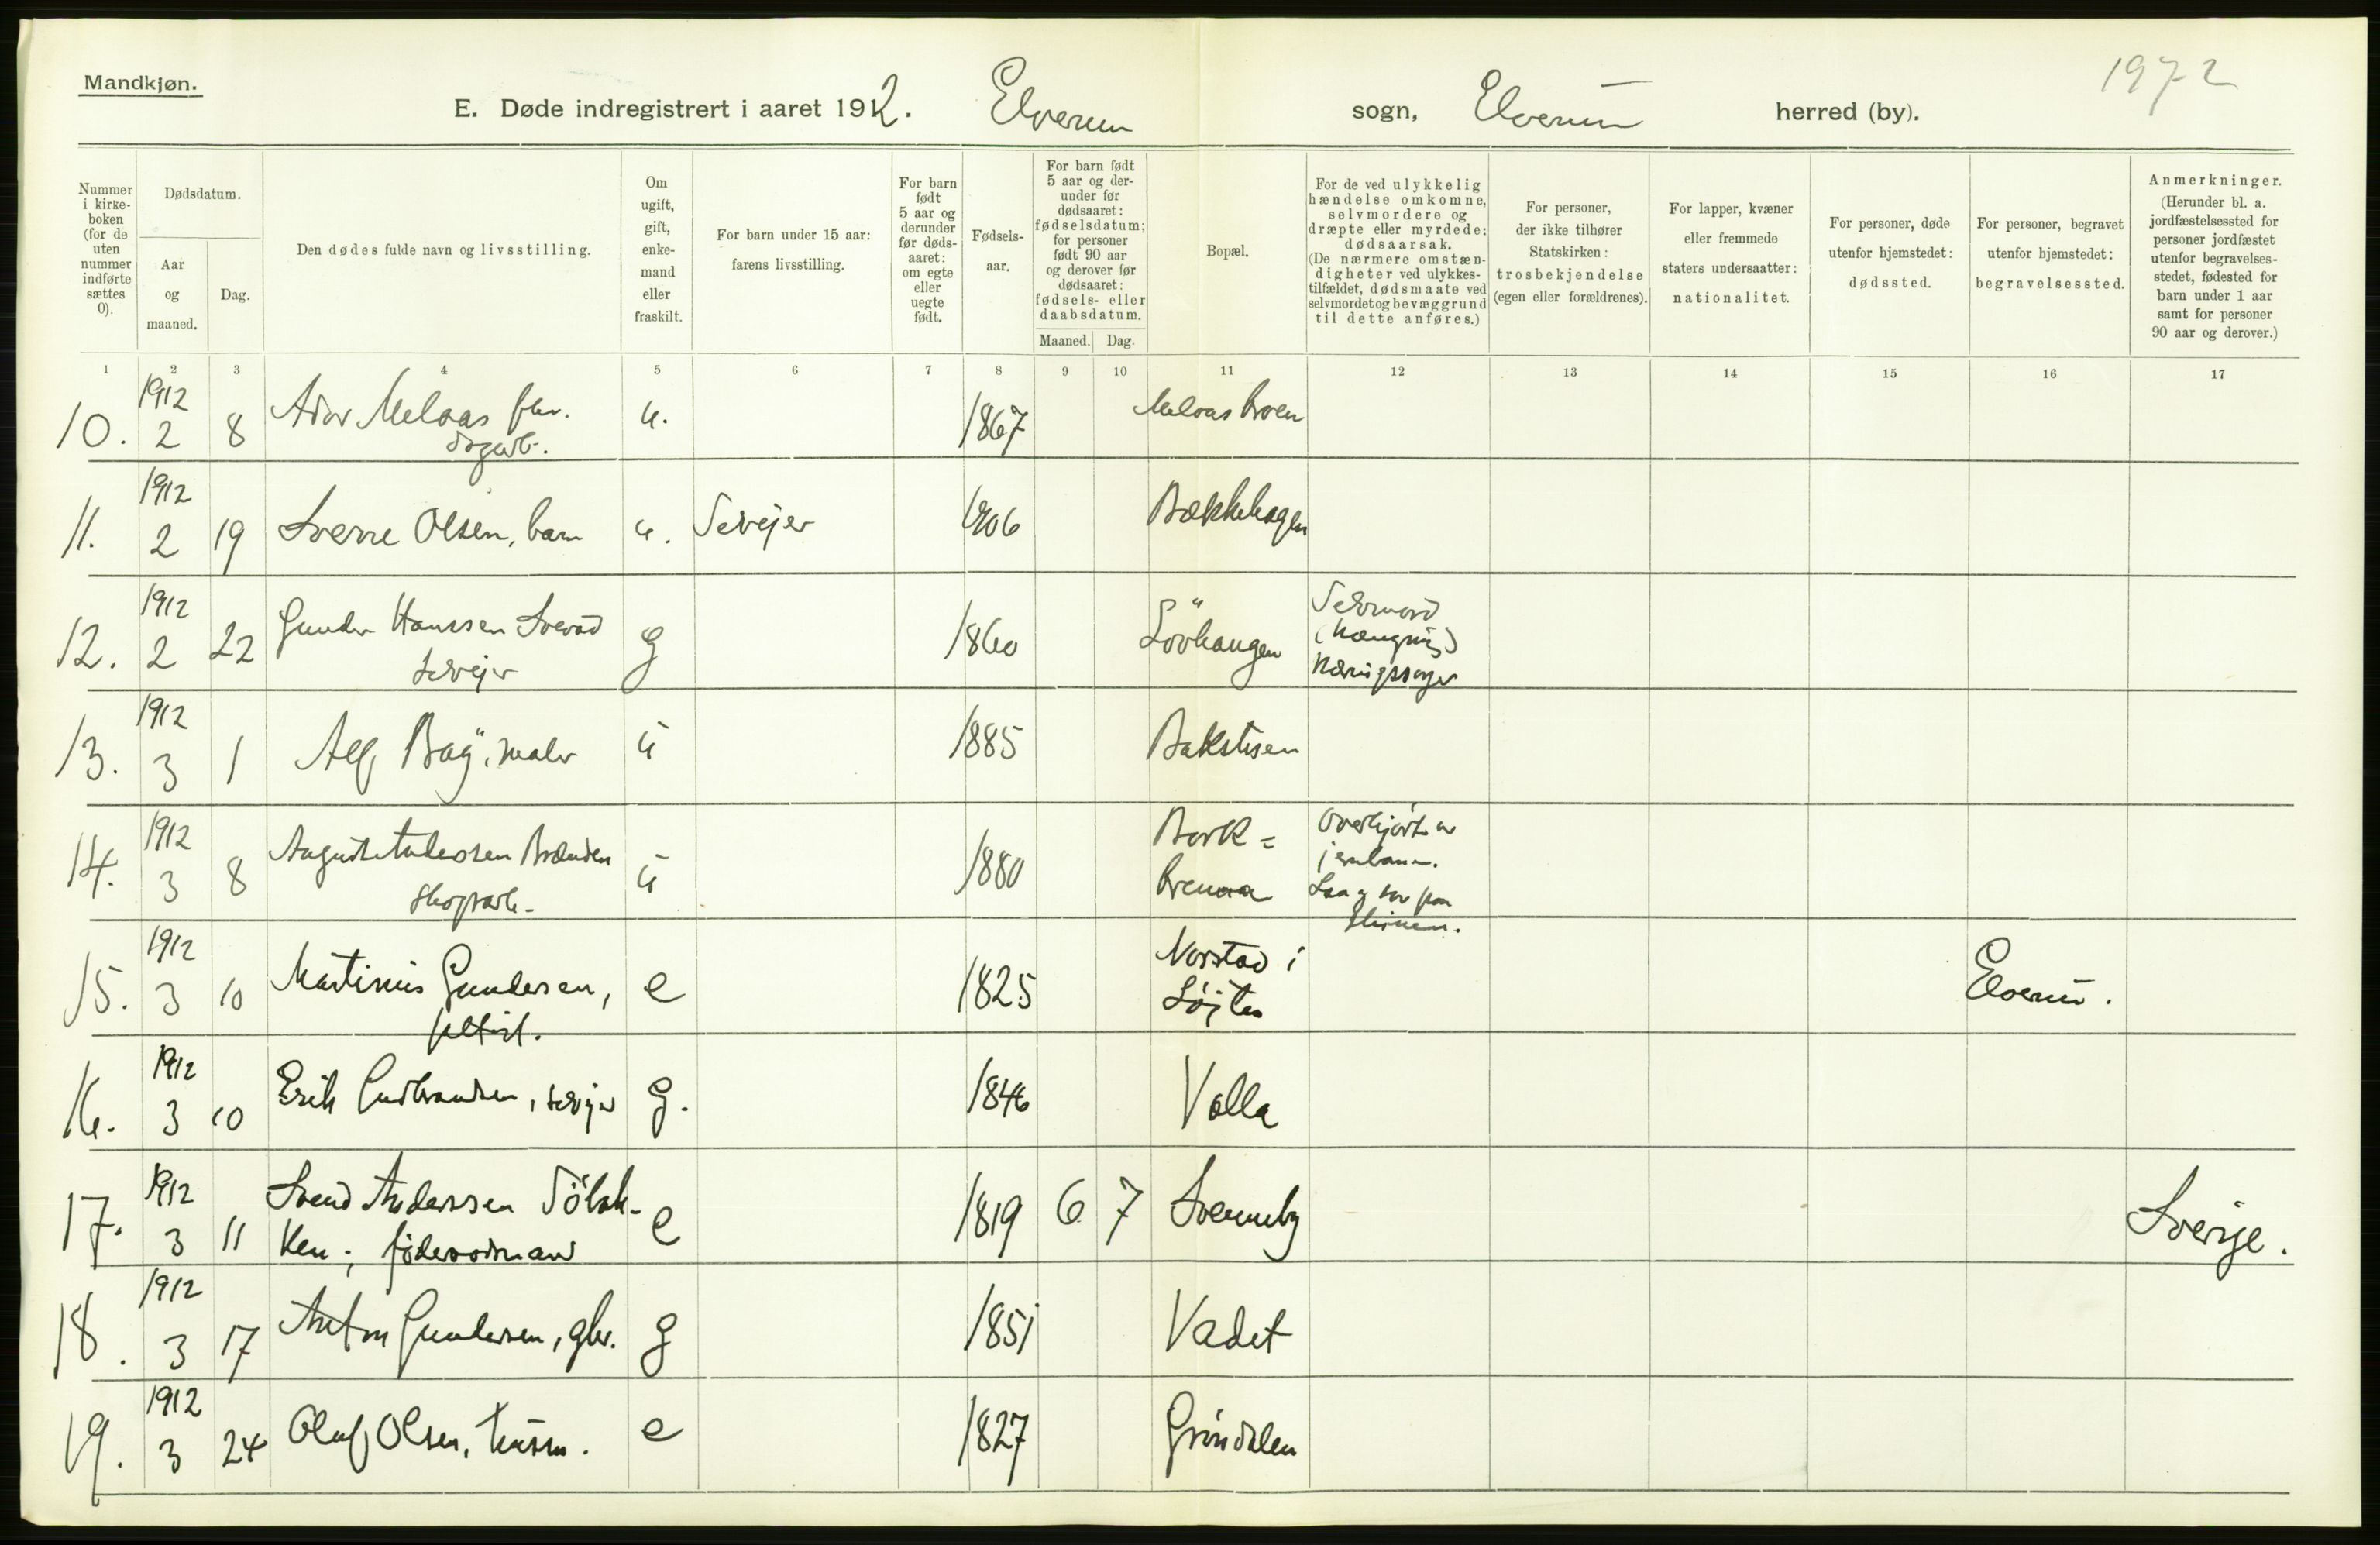 Mandkjøn.
1972
E. Døde indregistrert i aaret 1912. Elverum sogn, Elverum herred (by).
Nummer i kirke- boken (for de uten nummer indførte sættes 0).
Dødsdatum.
Aar og maaned.
Dag.
Den dødes fulde navn og livsstilling.
Om ugift, gift, enke- mand eller fraskilt.
For barn under 15 aar: farens livsstilling.
For barn født 5 aar og derunder før døds- aaret: om egte eller uegte født.
Fødsels- aar.
For barn født 5 aar og der- under før dødsaaret: fødselsdatum; for personer født 90 aar og derover før dødsaaret: fødsels- eller daabsdatum.
Maaned. Dag.
Bopæl.
For de ved ulykkelig hændelse omkomne, selvmordere og dræpte eller myrdede: dødsaarsak. (De nærmere omstæn- digheter ved ulykkes- tilfældet, dødsmaate ved selvmordet og bevæggrund til dette anføres.)
For personer, der ikke tilhører Statskirken: trosbekjendelse (egen eller forældrenes).
For lapper, kvæner eller fremmede staters undersaatter: nationalitet.
For personer, døde utenfor hjemstedet: dødssted.
For personer, begravet utenfor hjemstedet: begravelsessted.
Anmerkninger. (Herunder bl. a. jordfæstelsessted for personer jordfæstet utenfor begravelses- stedet, fødested for barn under 1 aar samt for personer 90 aar og derover.)
1 2 3 4 5 6 7 8 9 10 11 12 13 14 15 16 17
10. 1912 2 8 Melaas u. 1867
11. 1912 2 19 Sverre Olsen, barn u. Selvejer 1906 Bækkehagen
12. 1912 2 22 Gunder Hanssen g 1860 Lövhaugen Selvmord
Selvejer (hængning)
Næringssorger
13. 1912 3 1 Alf maler u 1885
14. 1912 3 8 August Andersen Brænden u 1880 Bork=
skogsarb. brenna jernbane.
skinnen.
15. 1912 3 10 Martinus Gundersen, e 1825 Norstad i Elverum.
Løjten
16. 1912 3 10 Erik Gudbrandsen, selvejer g. 1846 Valla
17. 1912 3 11 Svend Anderssen Sölbak- e 1819 6 7 Svenneby Sverige.
ken; föderaadsmand
18. 1912 3 17 Anton Gundersen, gbr. g 1851 Vadet
19. 1912 3 24 Oluf Olsen, husm. e 1827 Grindalen